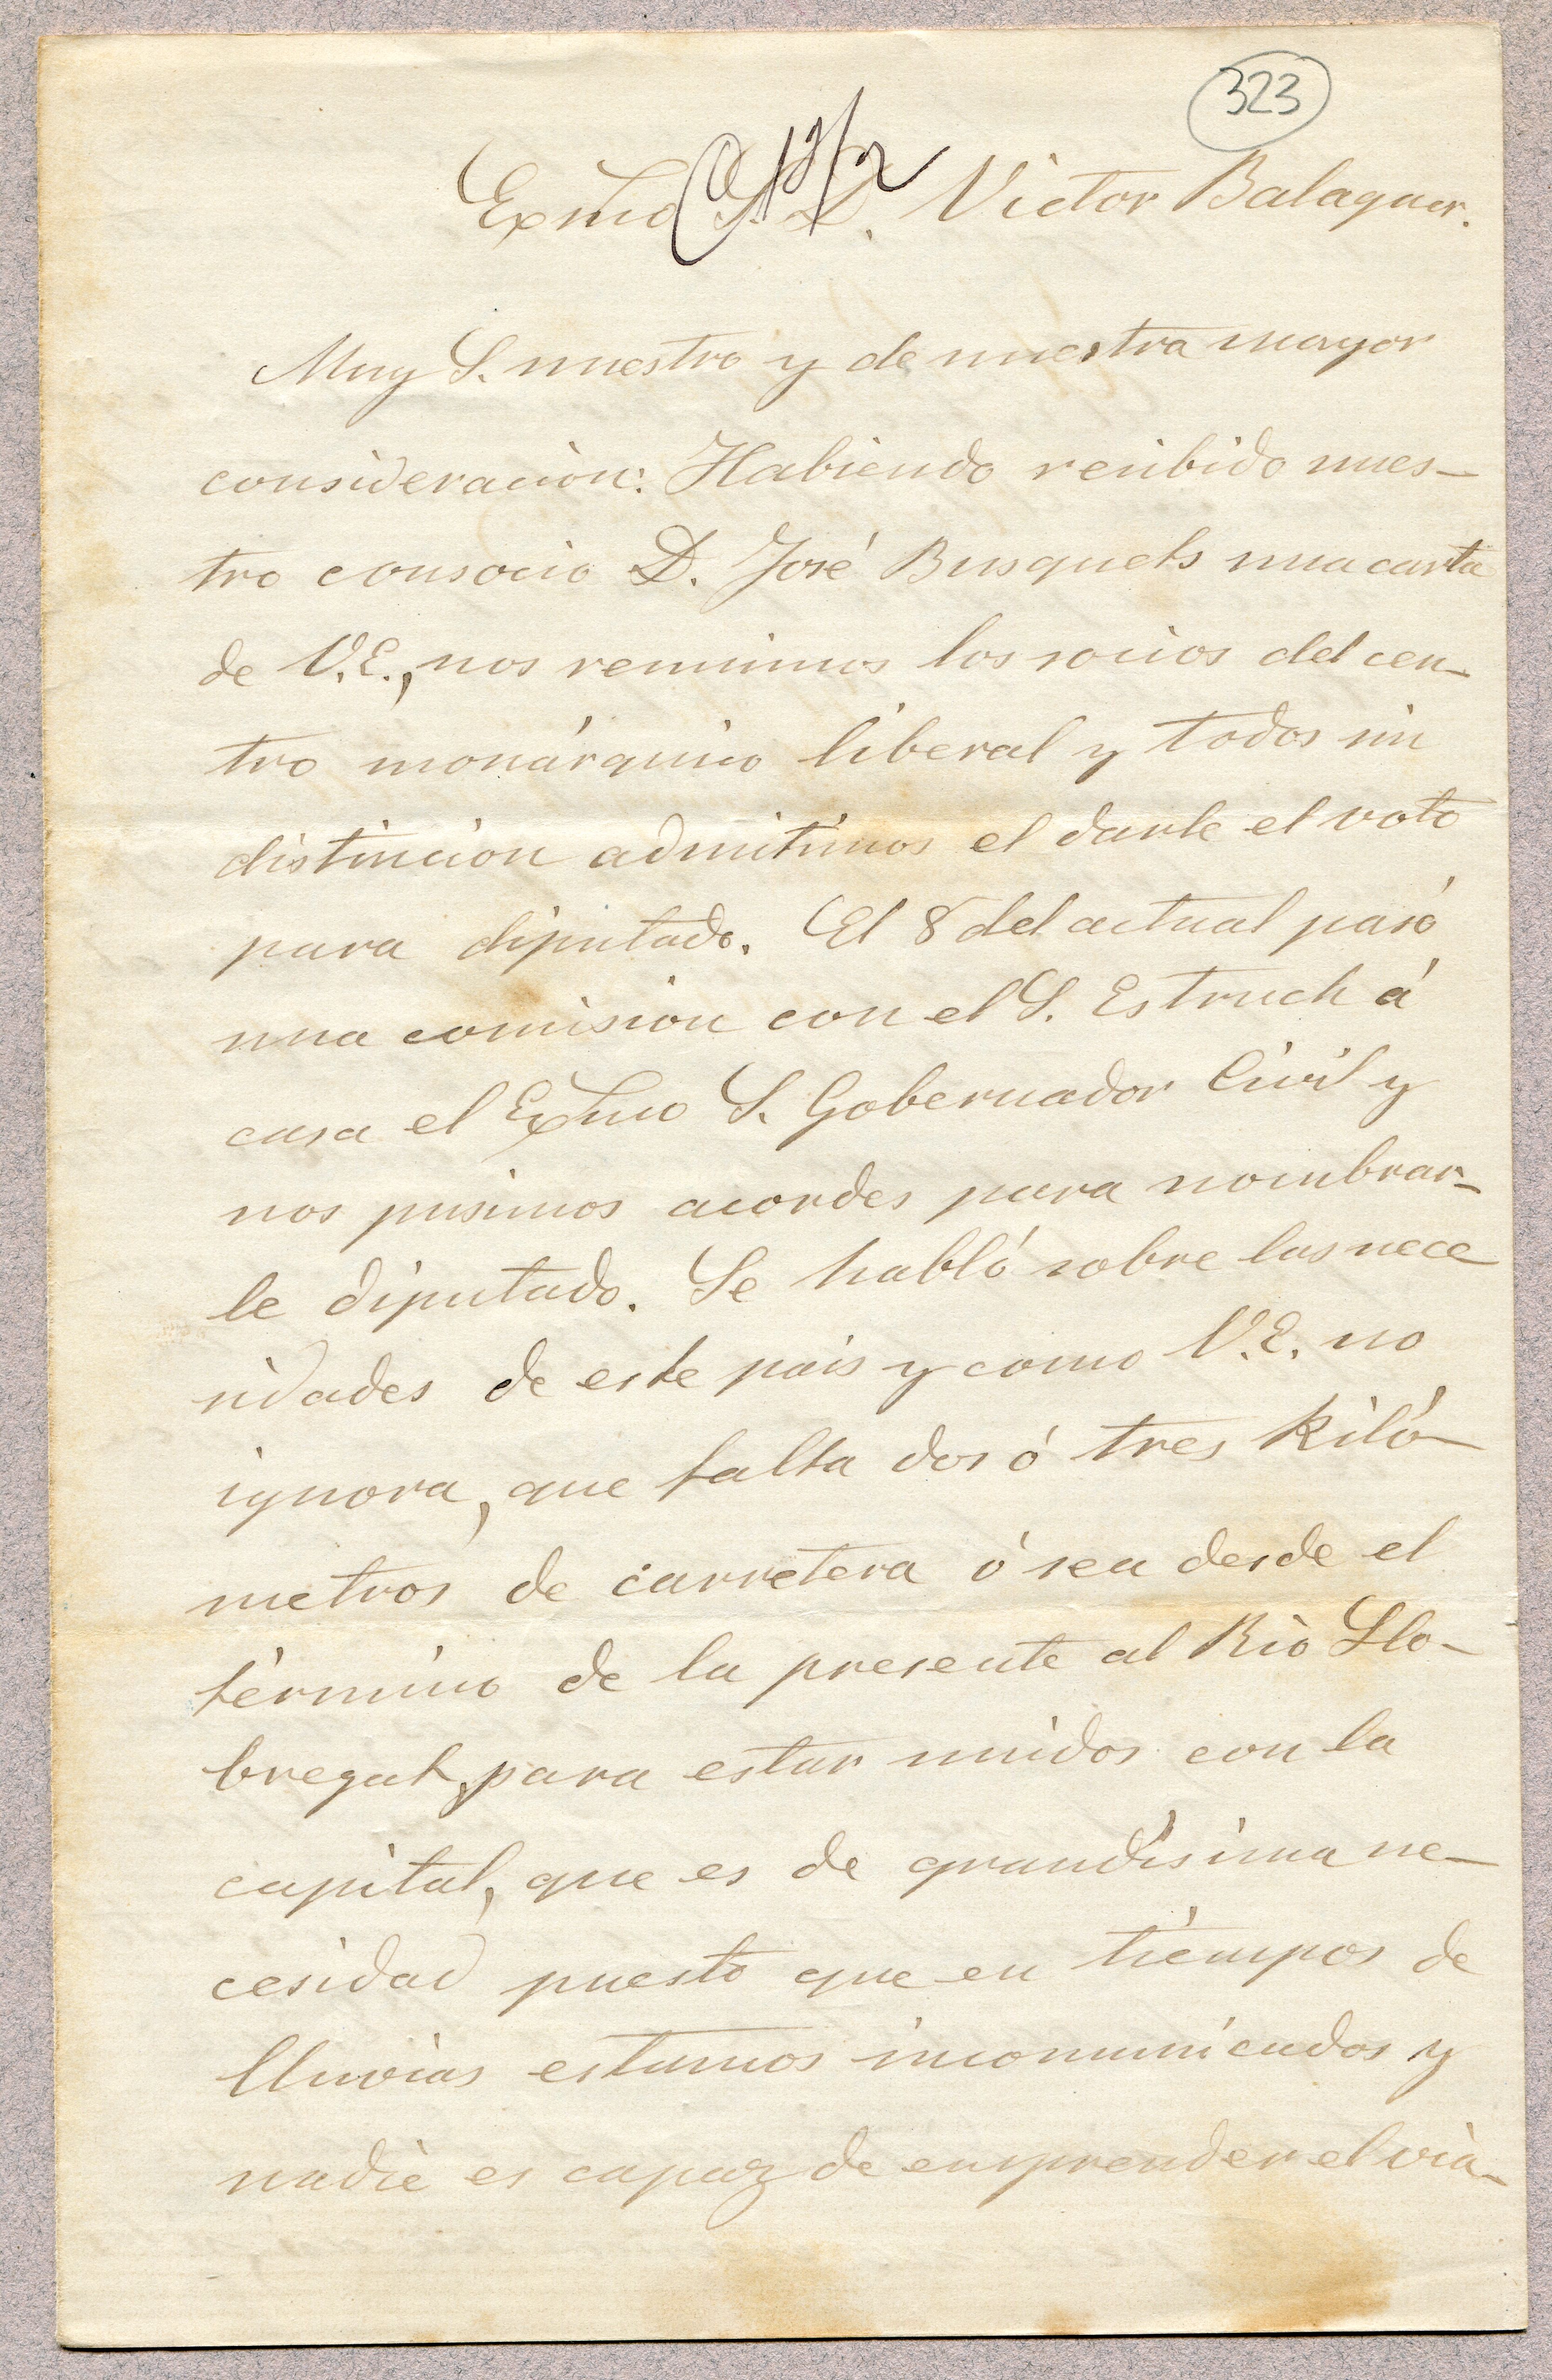 323
Exmo S. D. Victor Balaguer.
Muy S. nuestro y de nuestra mayor
consideracion: Habiendo recibido nues-
tro consocio D. José Busquets una carta
de V.E., nos reunimos los socios del cen-
tro monárquico liberal y todos sin
distincion admitimos el darle el voto
para diputado. El 8 del actual pasó
una comision con el S. Estruch á
casa el Exmo S. Gobernador Civil y
nos pusimos acordes para nombrar-
le diputado. Se habló sobre las nece
sidades de este pais y como V.E. no
ignora, que falta dos ó tres kiló-
metros de carretera ó sea desde el
término de la presente al Rio Llo-
bregat, para estar unidos con la
capital, que es de grandísima ne-
cesidad puesto que en tiempos de
lluvias estamos incomunicados y
nadie es capaz de emprender el via-